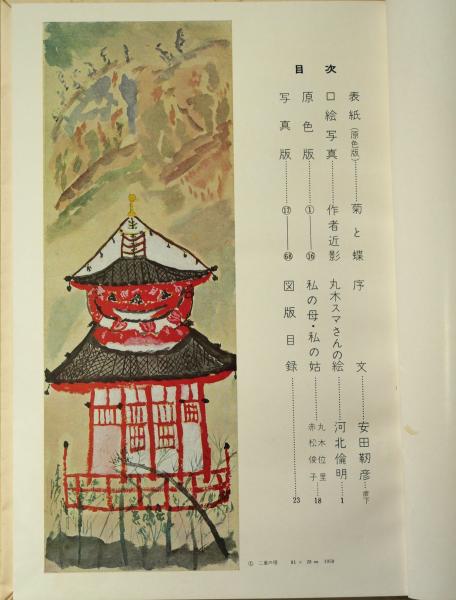 目次
表紙(原色版)……菊と蝶
口絵写真……作者近影
原色版……①—⑯
写真版……⑰—68
序文……安田靱彦…扉下
丸木スマさんの絵……河北倫明…1
私の母・私の姑……丸木位里 赤松俊子…18
図版目録……23
① 二重の塔 81 × 28 cm 1950